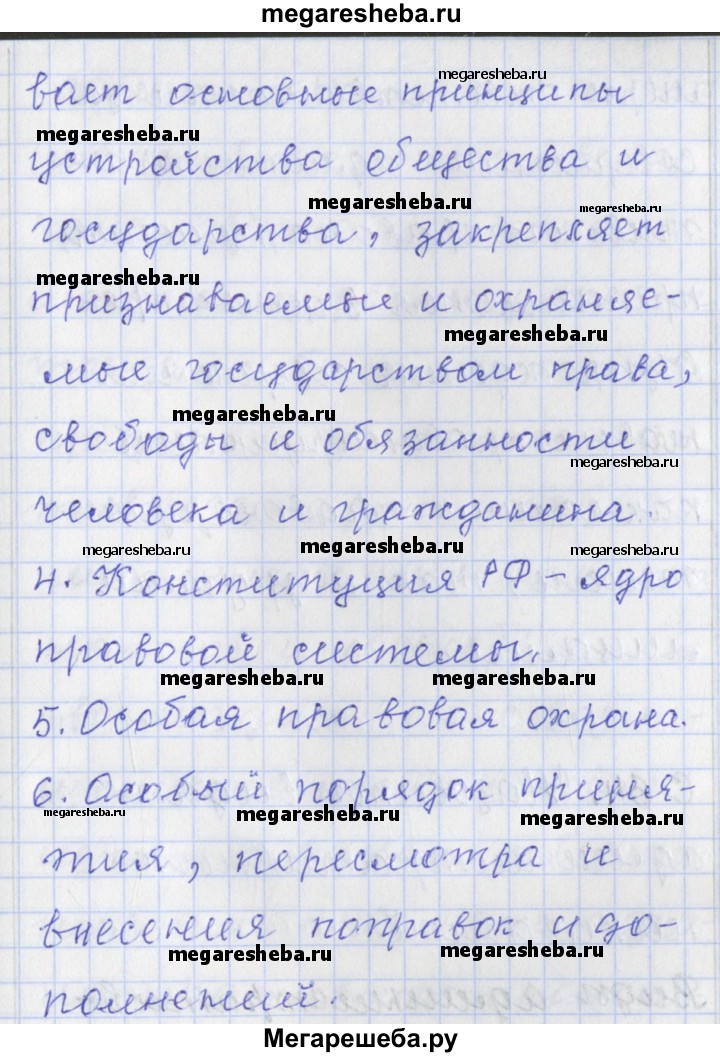 megaresheba.ru
вает основные принципы
megaresheba.ru
megaresheba.ru
устройства общества и
megaresheba.ru
megaresheba.ru
государства, закрепляет
megaresheba.ru
признаваемые и охраняе-
megaresheba.ru
мые государством права,
megaresheba.ru
свободы и обязанности
megaresheba.ru
человека и гражданина.
megaresheba.ru
megaresheba.ru
megaresheba.ru
4. Конституция РФ - ядро
правовой системы.
megaresheba.ru
megaresheba.ru
5. Особая правовая охрана.
6. Особый порядок приня-
megaresheba.ru
megaresheba.ru
megaresheba.ru
тия, пересмотра и
внесения поправок и до-
megaresheba.ru
megaresheba.ru
полнений.
Мегарешеба.ру